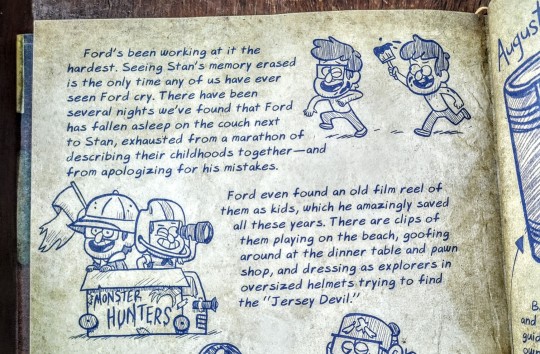 Ford's been working at it the
hardest. Seeing Stan's memory erased
is the only time any of us have ever
seen Ford cry. There have been
several nights we've found that Ford
has fallen asleep on the couch next
to Stan, exhausted from a marathon of
describing their childhoods together—and
from apologizing for his mistakes.
Ford even found an old film reel of
them as kids, which he amazingly saved
all these years. There are clips of
them playing on the beach, goofing
around at the dinner table and pawn
shop, and dressing as explorers in
oversized helmets trying to find
the "Jersey Devil."
MONSTER
HUNTERS
August
and